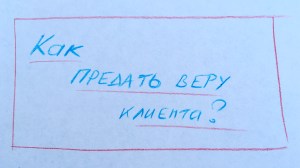 Как
ПРЕДАТЬ ВЕРУ
КЛИЕНТА?